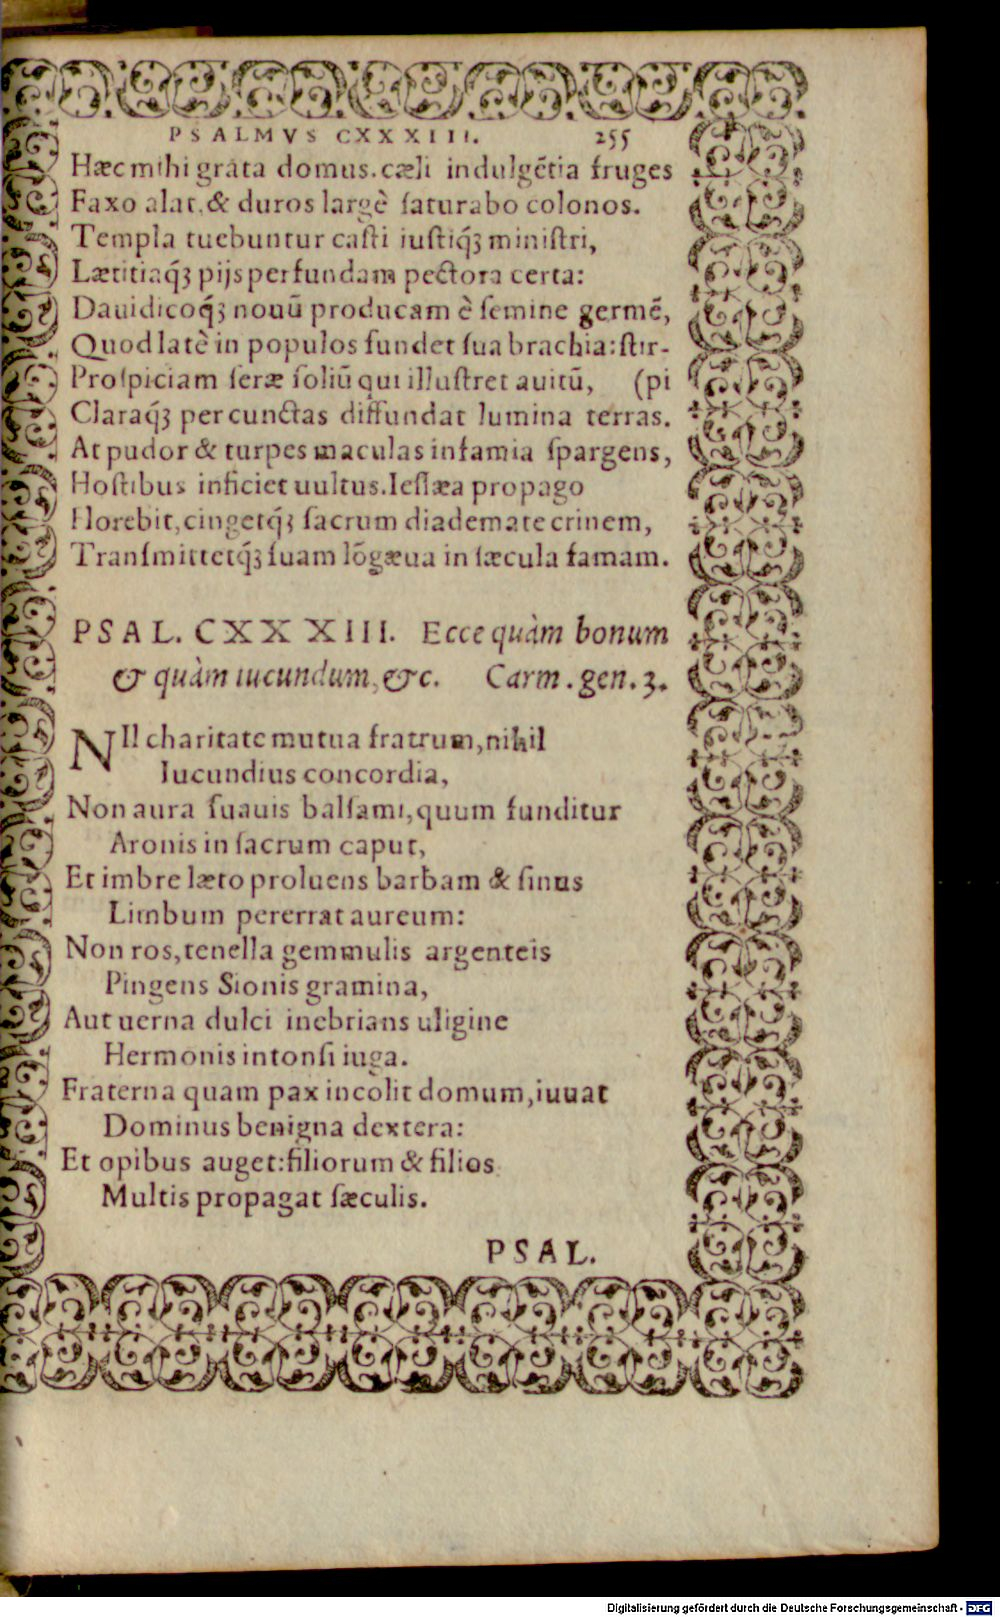 PSALMVS CXXXIII. 255
Hæc mihi grata domus. cæli indulgẽtia fruges
Faxo alat, & duros largè ſaturabo colonos.
Templa tuebuntur caſti iuſtiq́ꝫ miniſtri,
Lætitiaq́ꝫ pijs perfundam pectora certa:
Dauidicoq́ꝫ nouũ producam è ſemine germẽ,
Quod latè in populos fundet ſua brachia: ſtir-
Proſpiciam ſeræ ſoliũ qui illuſtret auitũ, (pi
Claraq́ꝫ per cunctas diffundat lumina terras.
At pudor & turpes maculas infamia ſpargens,
Hoſtibus inficiet uultus. Ieſſæa propago
Florebit, cingetq́ꝫ ſacrum diademate crinem,
Tranſmittetq́ꝫ ſuam lõgæua in ſæcula famam.
PSAL. CXXXIII. Ecce quàm bonum
& quàm iucundum, &c. Carm. gen. 3.
NIl charitate mutua fratrum, nihil
Iucundius concordia,
Non aura ſuauis balſami, quum funditur
Aronis in ſacrum caput,
Et imbre læto proluens barbam & ſinus
Limbum pererrat aureum:
Non ros, tenella gemmulis argenteis
Pingens Sionis gramina,
Aut uerna dulci inebrians uligine
Hermonis intonſi iuga.
Fraterna quam pax incolit domum, iuuat
Dominus benigna dextera:
Et opibus auget: filiorum & filios
Multis propagat ſæculis.
PSAL.
Digitalisierung gefördert durch die Deutsche Forschungsgemeinschaft - DFG